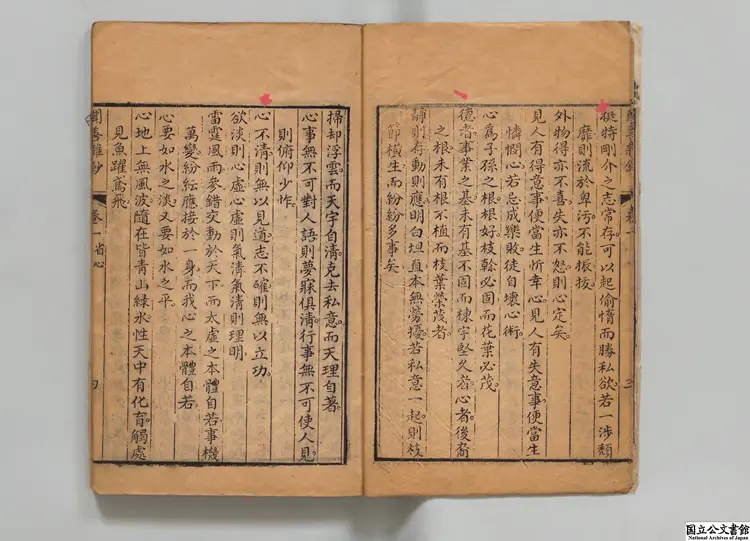 挺特剛介之志常存可以起偷惰而勝私欲若一涉頹
靡則流於卑污不能振拔
外物得亦不喜失亦不怒則心定矣
見人有得意事便當生忻幸心見人有失意事便當生
憐憫心若忌成樂敗徒自壞心術
心爲子孫之根根好枝榦必固而花葉必茂
德者事業之基未有基不固而棟宇堅久者心者後裔
之根未有根不植而枝葉榮茂者
靜則有動則應明白坦直本無勞擾若私意一起則枝
節橫生而紛紛多事矣
掃却浮雲而天宇自清克去私意而天理自著
心事無不可對人語則夢寐俱清行事無不可使人見
則俯仰少怍
心不清則無以見道志不確則無以立功
欲淡則心虛心虛則氣清氣清則理明
雷霆風雨參錯交動於天下而太虛之本體自若事機
萬變紛紜應接於一身而我心之本體自若
心要如水之淡又要如水之平
心地上無風波隨在皆青山綠水性天中有化育觸處
見魚躍鳶飛
卷一
省心
四
國立公文書館
National Archives of Japan